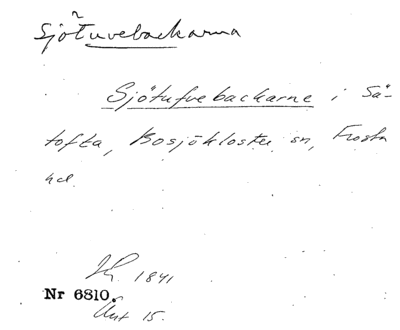 Sjötuvebackarna
Sjötufvebackarne i Sä-
tofta, Bosjökloster sn, Frosta
hd.
1841
Nr 6810.
Ant 15.